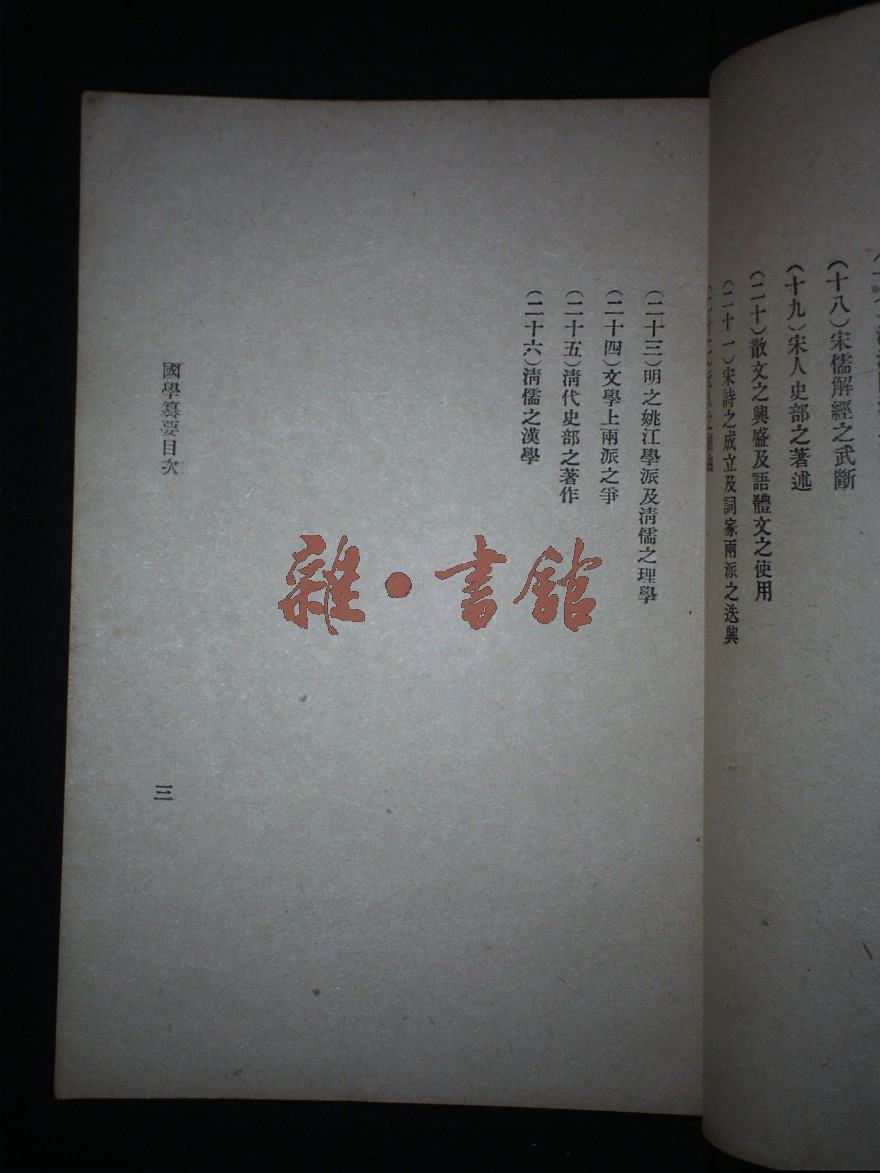 （十八）宋儒解經之武斷
（十九）宋人史部之著述
（二十）散文之興盛及語體文之使用
（二十一）宋詩之成立及詞家兩派之迭興
（二十三）明之姚江學派及淸儒之理學
（二十四）文學上兩派之爭
（二十五）淸代史部之著作
（二十六）淸儒之漢學
國學纂要目次
三
雜·書館